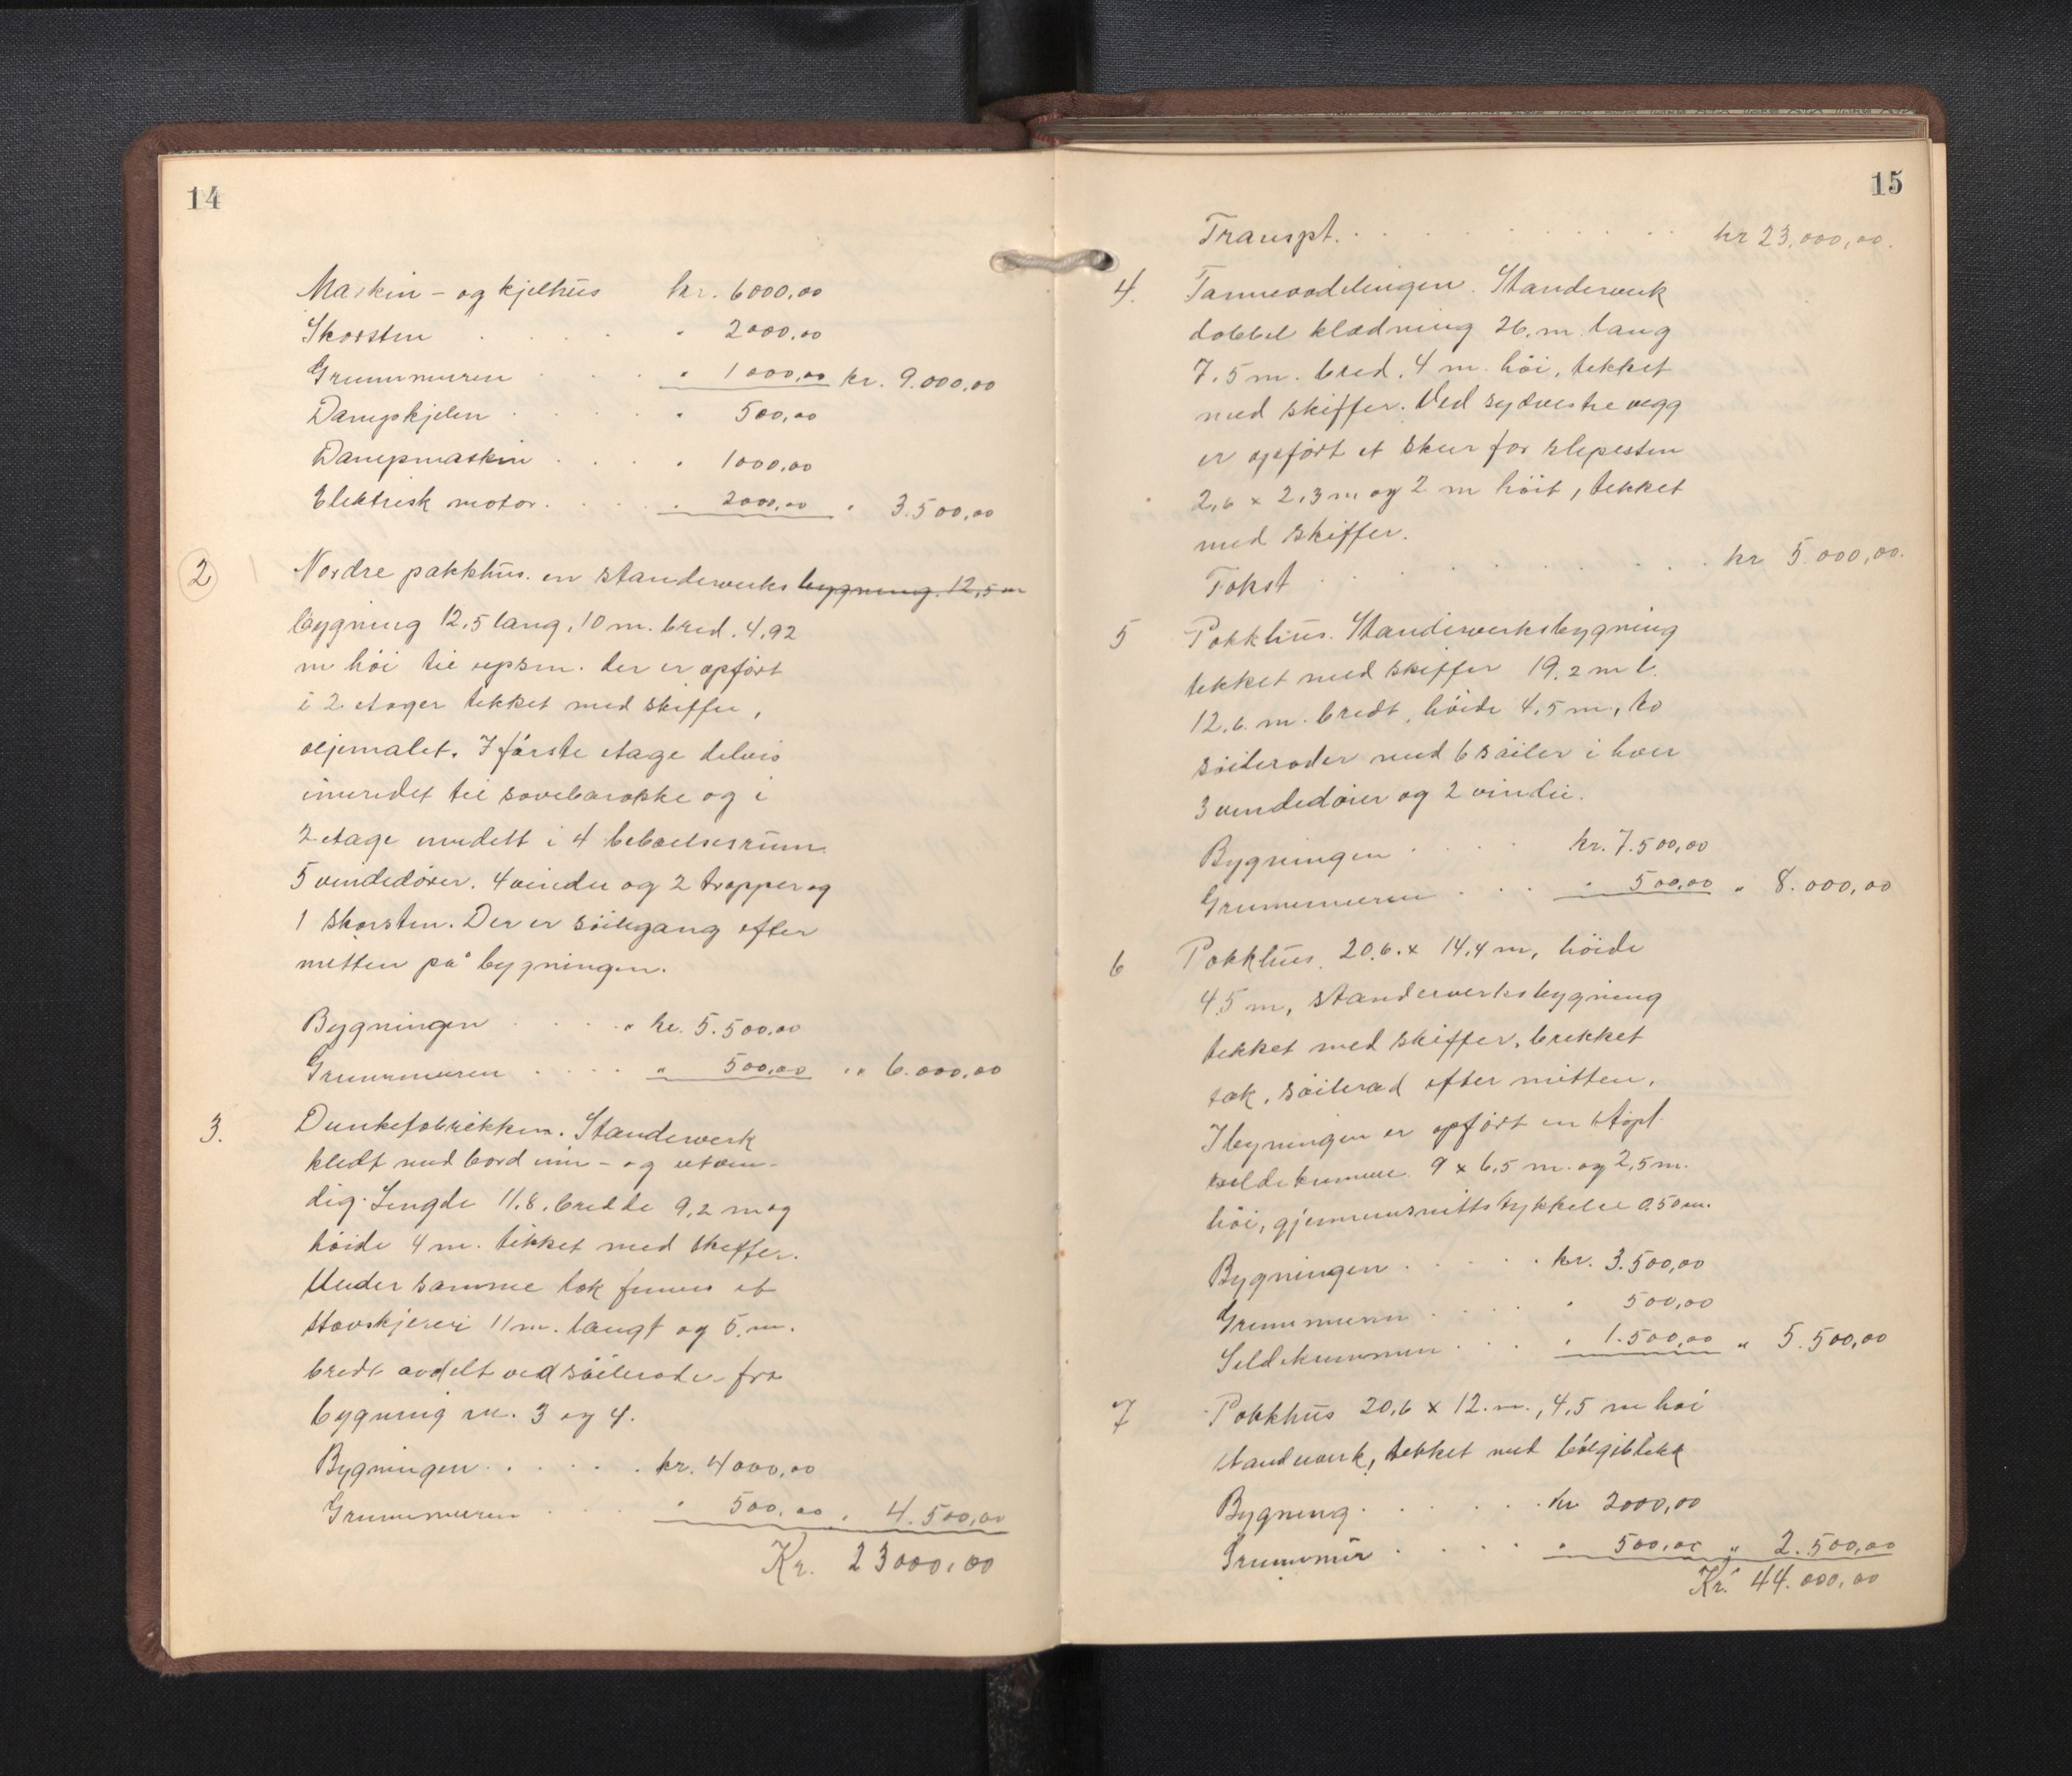 14
Maskin - og kjelhus kr. 6000,00
Skorsten . . . . " 2000,00
Grunnmuren . . . " 1000,00 kr. 9.000,00
Dampkjelen . . . " 500,00
Dampmaskin . . . " 1000,00
Elektrisk motor. . . . " 2000,00 " 3.500,00
2 Nordre pakkhus. en standerverks bygning. 12,5 m
bygning 12,5 lang, 10 m. bred. 4,92
m höi til der er opfört
i 2 etager tekket med skiffer,
oljemalet. I förste etage delvis
inredet til sovebarakke og i
2 etage inndelt i 4 beboelsesrum
5 vindedörer. 4 vinduer og 2 trapper og
1 skorsten. Der er söilegang efter
mitten på bygningen.
Bygningen . . . . " kr. 5.500,00
Grunnmuren . . . . " 500,00 " " 6.000,00
3. Dunkefabrikken. Standerverk
kledt med bord inn - og utven-
dig. Lengde 11,8, bredde 9,2 m og
höide 4 m. tekket med skiffer.
Under samme tak finnes et
stavskjereri 11 m. langt og 5 m.
bredt avdelt ved söilerader fra
bygning nr. 3 og 4.
Bygningen . . . . . kr. 4000,00
Grunnmuren . . . " 500,00 " 4.500,00
Kr. 23000,00
15
Transpt. . . . . . . . . . . kr 23.000,00.
4. Tønneavdelingen. Standerverk
dobbel klædning 26, m lang
7,5 m. bred, 4 m. höi, tekket
med skiffer. Ved sydvestre vegg
er opfört et skur for slipesten
2,6 x 2,3 m og 2 m höit, tekket
med skiffer.
Takst . . . . . . . . . . kr 5.000,00.
5 Pakkhus. Standerverksbygning
tekket med skiffer 19,2 m l.
12,6. m. bredt, höide 4,5 m, to
söilerader med 6 söiler i hver
3 vindedörer og 2 vinduer.
Bygningen . . . . kr. 7.500,00
Grunnmuren . . . " 500,00 " 8.000,00
6 Pakkhus. 20,6. x 14,4 m, höide
4,5 m, standerverksbygning
tekket med skiffer, brekket
tak, söilerad efter mitten.
I bygningen er opfört en støpt
sildekumme 9 x 6,5 m. og 2,5 m.
höi, gjennemsnittstykkelse 0,50 m.
Bygningen . . . . . kr. 3.500,00
Grunnmuren . . . . " 500,00
Sildekummen . . . " 1.500,00 " 5.500,00
7 Pakkhus 20,6 x 12. m., 4,5 m höi
standerverk, tekket med bölgeblekk
Bygning . . . . . . kr 2000,00
Grunnmur . . . . " 500,00 " 2.500,00
Kr. 44.000,00